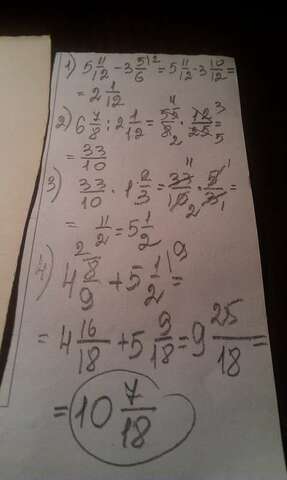 1) 5 11/12 - 3 5/6 ^2 = 5 11/12 - 3 10/12 =
= 2 1/12
2) 6 7/8 : 2 1/12 = 55/8 · 12/25 =
= 33/10
3) 33/10 · 1 2/3 = 33/10 · 5/3 =
= 11/2 = 5 1/2
4) 4 8/9 + 5 1/2 =
= 4 16/18 + 5 9/18 = 9 25/18 =
= 10 7/18